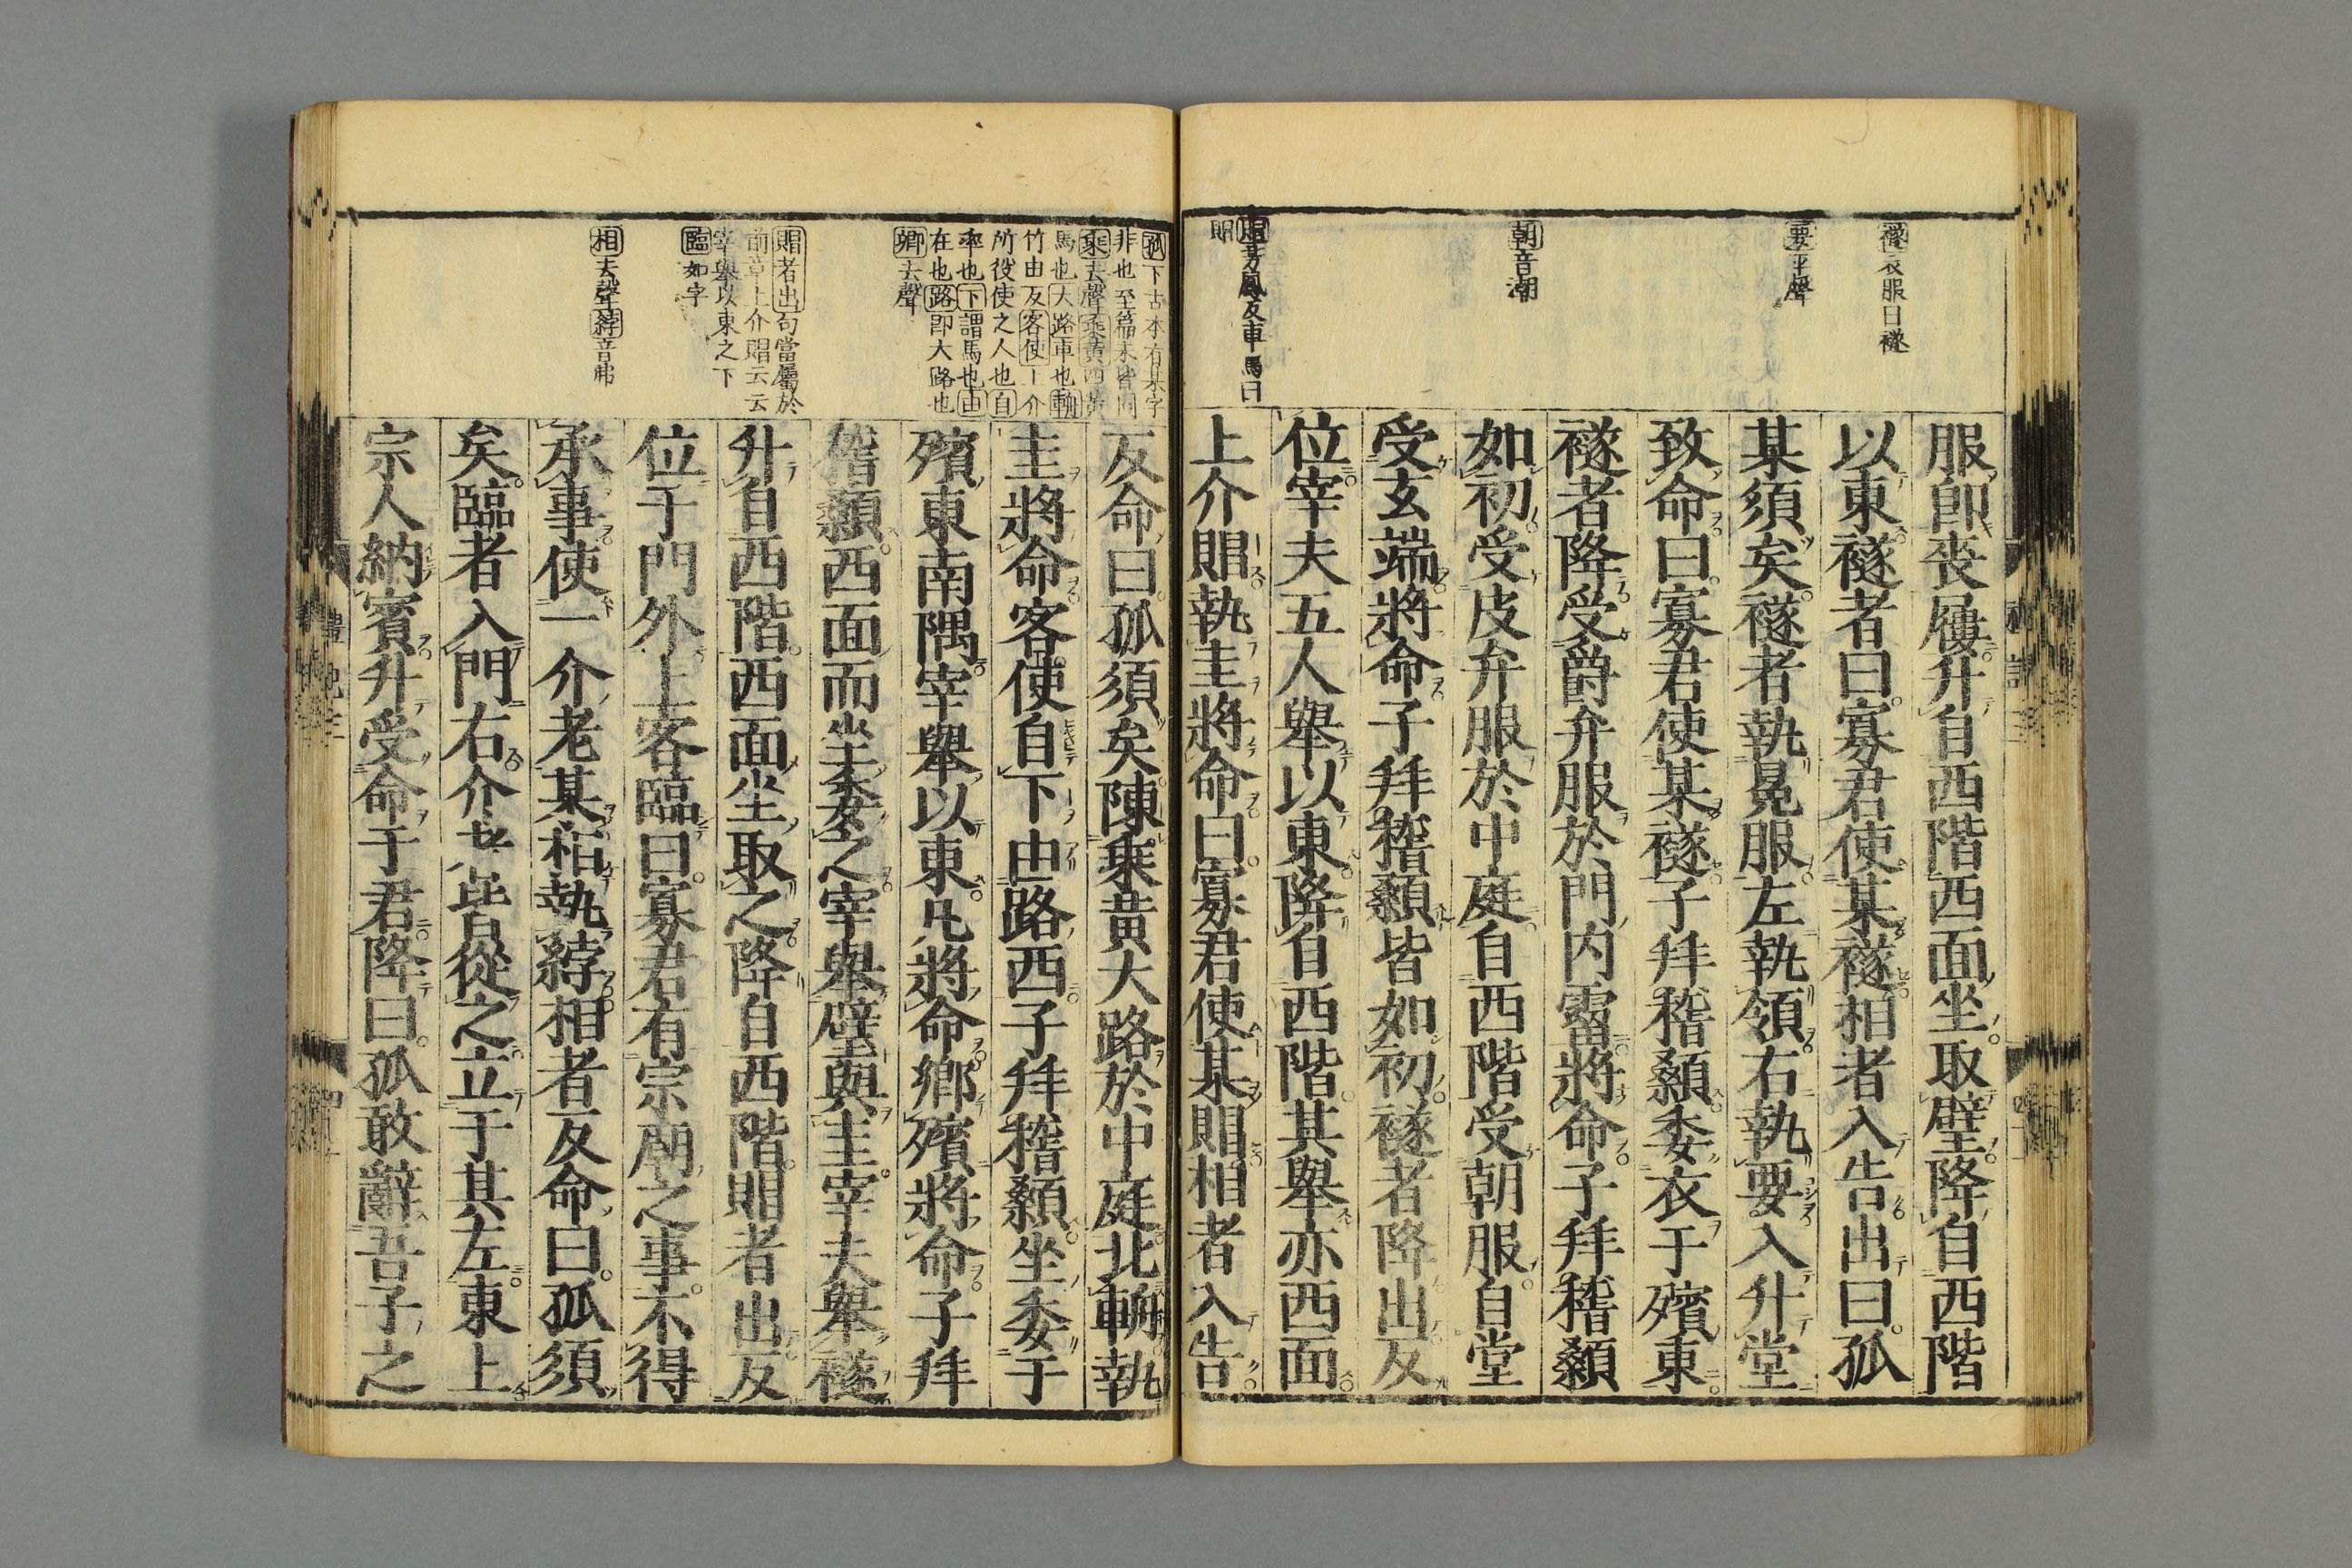 襚衣服曰襚
要平聲
朝音潮
賵芳鳳反車馬曰
賵
服卽喪屨升自西階西面坐取璧降自西階
以東襚者曰寡君使某襚相者入告出曰孤
某須矣襚者執冕服左執領右執要入升堂
致命曰寡君使某襚子拜稽顙委衣于殯東
襚者降受爵弁服於門内霤將命子拜稽顙
如初受皮弁服於中庭自西階受朝服自堂
受玄端將命子拜稽顙皆如初襚者降出反
位宰夫五人舉以東降自西階其舉亦西面
上介賵執圭將命曰寡君使某賵相者入告
孤下古本有某字
非也至篇末皆同
乘去聲乘黄四黄
馬也大路車也輈
竹由反客使上介
所役使之人也自
率也下謂馬也由
在也路卽大路也
鄉去聲
賵者出句當屬於
前章上介賵云云
宰舉以東之下
臨如字
相去聲綍音弗
反命曰孤須矣陳乘黄大路於中庭北輈執
圭將命客使自下由路西子拜稽顙坐委于
殯東南隅宰舉以東凡將命鄉殯將命子拜
稽顙西面而坐委之宰舉璧與圭宰夫舉襚
升自西階西面坐取之降自西階賵者出反
位于門外上客臨曰寡君有宗廟之事不得
承事使一介老某相執綍相者反命曰孤須
矣臨者入門右介者皆從之立于其左東上
宗人納賓升受命于君降曰孤敢辭吾子之
禮記三